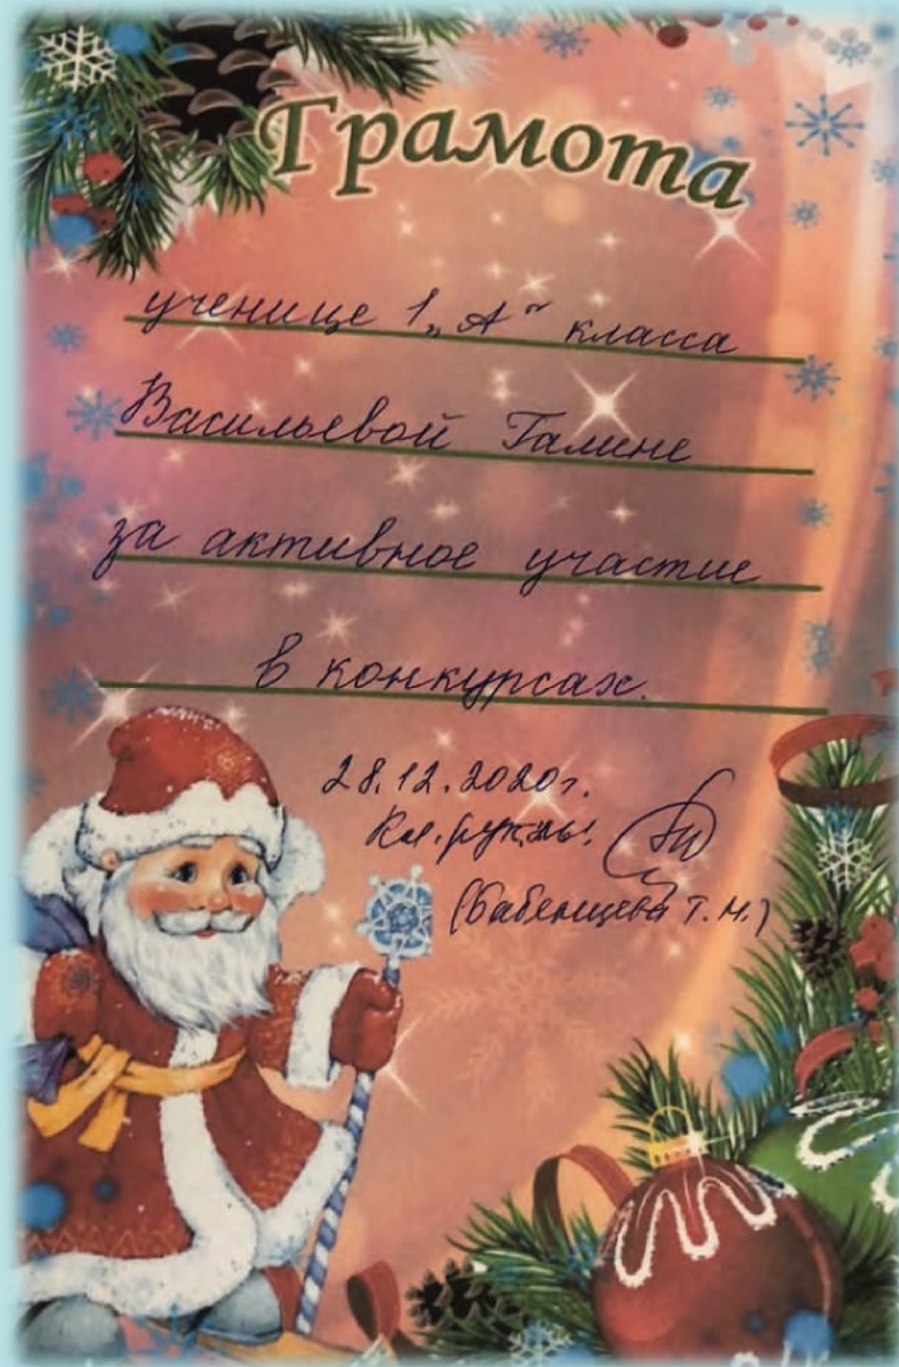 Грамота
ученице 1 „А" класса
Васильевой Галине
за активное участие
в конкурсах.
28.12.2020г.
Кл. рук-ль:
(Бабенцева Т. Н.)